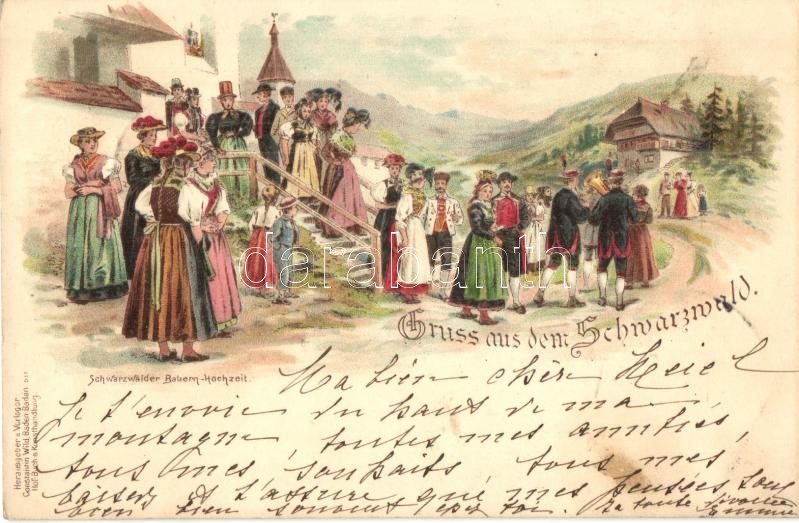 Gruss aus dem Schwarzwald.
Schwarzwälder Bauern-Hochzeit.
Herausgeber u. Verleger
Constantin Wild, Baden Baden 011
Hof-Buch & Kunsthandlung
darabanth
Ma bien chère
Je t'envoie du haut de ma
montagne, toutes mes amitiés,
tous mes souhaits, tous mes
baisers et t'assure que mes pensées sont
bien bien souvent chez toi. Ta toute dévouée
Emmie